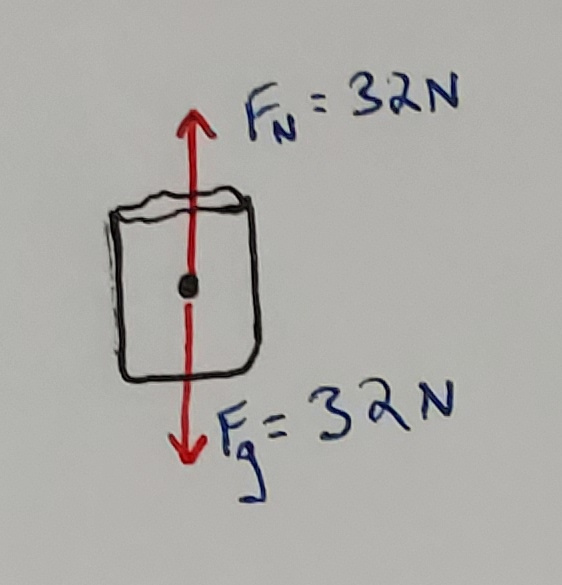 FN = 32N
Fg = 32N